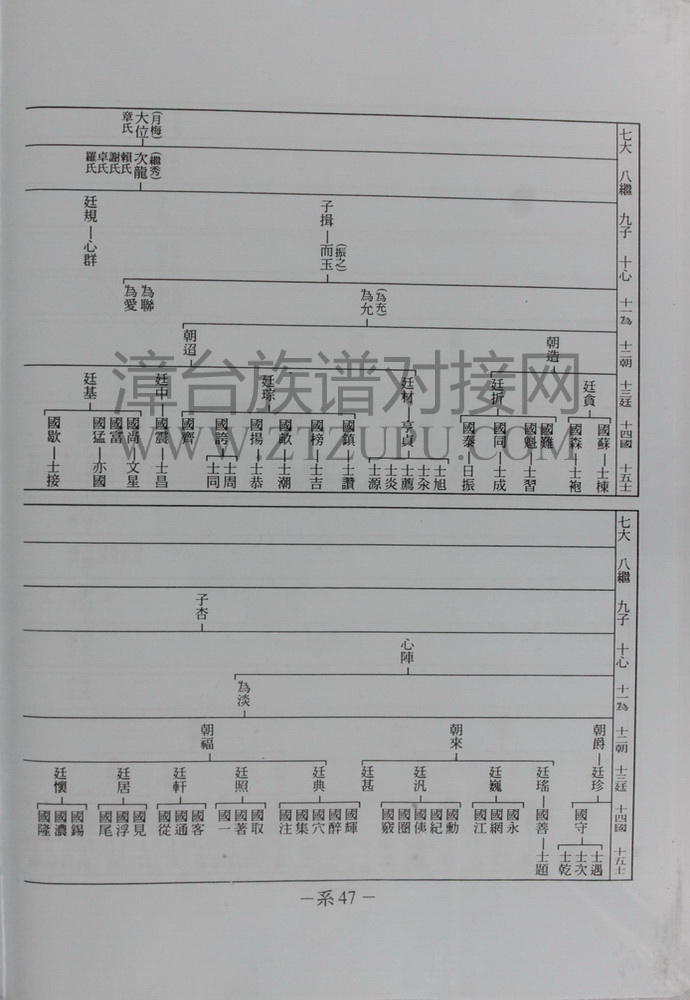 七大 八繼 九子 十心 十一為 十二朝 十三廷 十四國 十五士
(月梅)
大位
章氏
(繼秀)
次龍
賴氏
謝氏
卓氏
羅氏
子揖—而玉
(振之)
廷規—心群
(為充)
為允
為聯
為愛
朝造
朝迢
廷貪
廷折
廷材—亨貞
廷琮
廷中
廷基
國蘇—士棟
國森—士袍
國難
國魁—士習
國同—士成
國泰—日振
士旭
士汆
士薦
士炎
士源
國鎮—士讚
國榜—士吉
國畝—士潮
國揚—士恭
國誇
士周
士同
國齊
國震—士昌
國尚—文星
國富
國猛—亦國
國歇—士接
漳台族谱对接网
WWW.ZTZUPU.COM
七大 八繼 九子 十心 十一為 十二朝 十三廷 十四國 十五士
子杏
心陣
為淡
朝爵—廷珍
朝來
朝福
廷瑤—國善—士題
廷巍
廷汎
廷甚
廷典
廷照
廷軒
廷居
廷懷
國守
士遇
士次
士乾
國永
國網
國江
國勳
國紀
國傳
國圈
國竅
國輝
國醉
國穴
國集
國注
國取
國著
國一
國客
國通
國從
國見
國浮
國尾
國錫
國濃
國隆
—系 47—